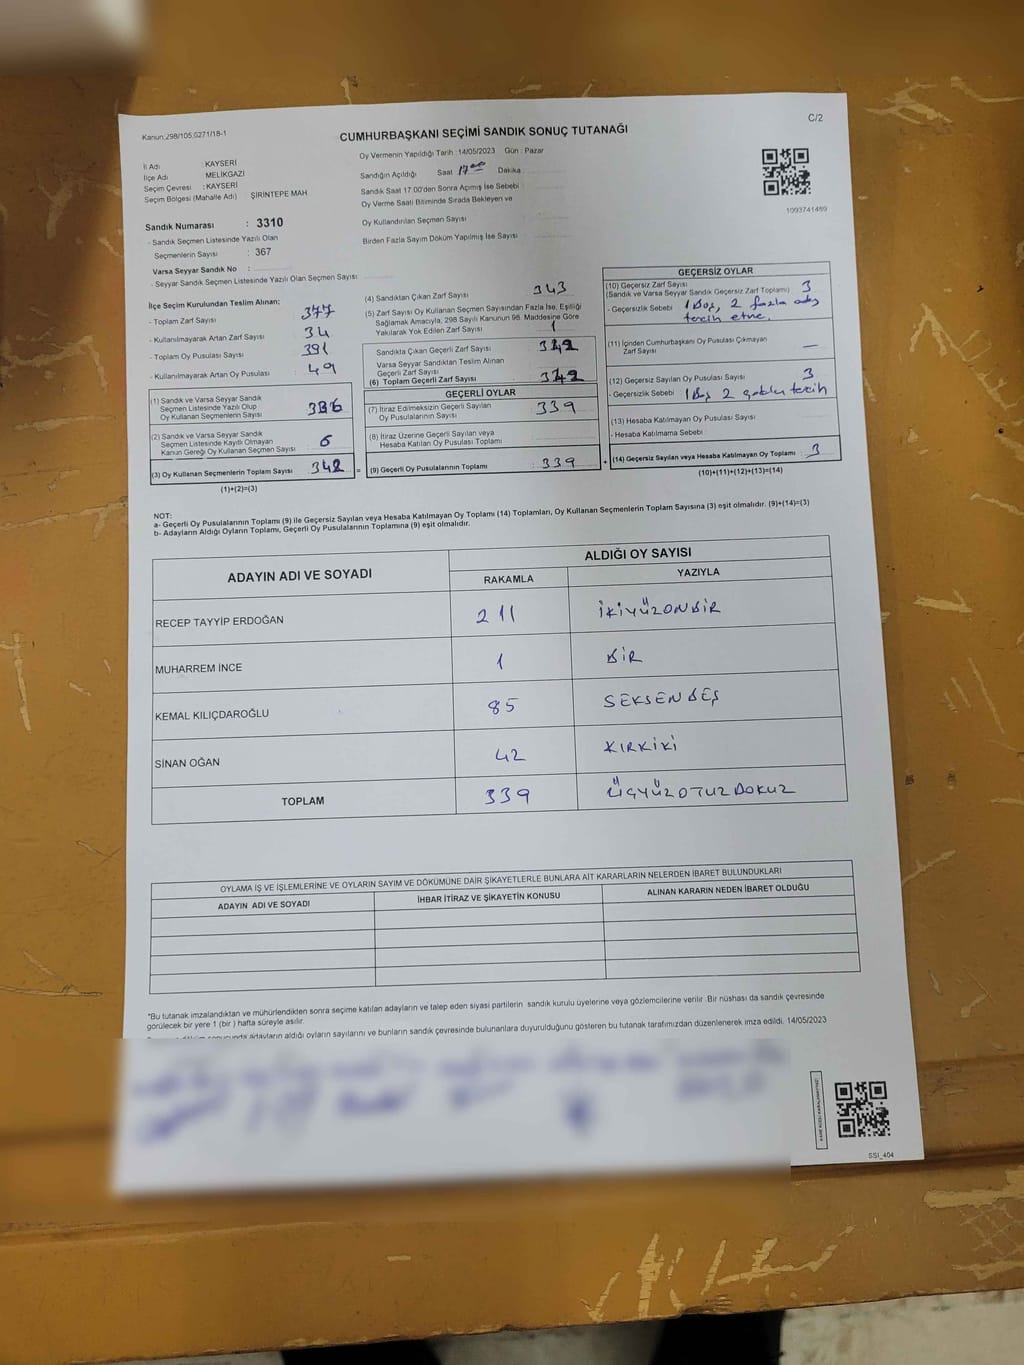 Kanun:298/105,6271/18-1
C/2
CUMHURBAŞKANI SEÇİMİ SANDIK SONUÇ TUTANAĞI
İl Adı : KAYSERİ
İlçe Adı MELİKGAZİ
Seçim Çevresi : KAYSERİ
Seçim Bölgesi (Mahalle Adı) ŞİRİNTEPE MAH
Sandık Numarası : 3310
- Sandık Seçmen Listesinde Yazılı Olan
Seçmenlerin Sayısı : 367
Varsa Seyyar Sandık No :
- Seyyar Sandık Seçmen Listesinde Yazılı Olan Seçmen Sayısı
Oy Vermenin Yapıldığı Tarih :14/05/2023 Gün : Pazar
Sandığın Açıldığı Saat 17:00 Dakika
Sandık Saat 17.00'den Sonra Açımış İse Sebebi
Oy Verme Saati Bitiminde Sırada Bekleyen ve
Oy Kullandırılan Seçmen Sayısı
Birden Fazla Sayım Döküm Yapılmış İse Sayısı
1093741489
İlçe Seçim Kurulundan Teslim Alınan:
- Toplam Zarf Sayısı 377
- Kullanılmayarak Artan Zarf Sayısı 34
- Toplam Oy Pusulası Sayısı 391
- Kullanılmayarak Artan Oy Pusulası 49
(1) Sandık ve Varsa Seyyar Sandık
Seçmen Listesinde Yazılı Olup
Oy Kullanan Seçmenlerin Sayısı 336
(2) Sandık ve Varsa Seyyar Sandık
Seçmen Listesinde Kayıtlı Olmayan
Kanun Gereği Oy Kullanan Seçmen Sayısı 6
(3) Oy Kullanan Seçmenlerin Toplam Sayısı 342
(1)+(2)=(3)
(4) Sandıktan Çıkan Zarf Sayısı 343
(5) Zarf Sayısı Oy Kullanan Seçmen Sayısından Fazla İse, Eşitliği
Sağlamak Amacıyla, 298 Sayılı Kanunun 98. Maddesine Göre
Yakılarak Yok Edilen Zarf Sayısı 1
Sandıkta Çıkan Geçerli Zarf Sayısı 342
Varsa Seyyar Sandıktan Teslim Alınan
Geçerli Zarf Sayısı
(6) Toplam Geçerli Zarf Sayısı 342
GEÇERLİ OYLAR
(7) İtiraz Edilmeksizin Geçerli Sayılan
Oy Pusulalarının Sayısı 339
(8) İtiraz Üzerine Geçerli Sayılan veya
Hesaba Katılan Oy Pusulası Toplamı
= (9) Geçerli Oy Pusulalarının Toplamı : 339
GEÇERSİZ OYLAR
(10) Geçersiz Zarf Sayısı 3
(Sandık ve Varsa Seyyar Sandık Geçersiz Zarf Toplamı)
- Geçersizlik Sebebi 1 Boş, 2 fazla aday
tercih etme.
(11) İçinden Cumhurbaşkanı Oy Pusulası Çıkmayan
Zarf Sayısı —
(12) Geçersiz Sayılan Oy Pusulası Sayısı 3
- Geçersizlik Sebebi 1 Boş 2 çoklu tercih
(13) Hesaba Katılmayan Oy Pusulası Sayısı
- Hesaba Katılmama Sebebi
+ (14) Geçersiz Sayılan veya Hesaba Katılmayan Oy Toplamı : 3
(10)+(11)+(12)+(13)=(14)
NOT:
a- Geçerli Oy Pusulalarının Toplamı (9) ile Geçersiz Sayılan veya Hesaba Katılmayan Oy Toplamı (14) Toplamları, Oy Kullanan Seçmenlerin Toplam Sayısına (3) eşit olmalıdır. (9)+(14)=(3)
b- Adayların Aldığı Oyların Toplamı, Geçerli Oy Pusulalarının Toplamına (9) eşit olmalıdır.
ADAYIN ADI VE SOYADI ALDIĞI OY SAYISI
RAKAMLA YAZIYLA
RECEP TAYYİP ERDOĞAN 211 İKİYÜZONBİR
MUHARREM İNCE 1 BİR
KEMAL KILIÇDAROĞLU 85 SEKSENBEŞ
SİNAN OĞAN 42 KIRKİKİ
TOPLAM 339 ÜÇYÜZOTUZDOKUZ
OYLAMA İŞ VE İŞLEMLERİNE VE OYLARIN SAYIM VE DÖKÜMÜNE DAİR ŞİKAYETLERLE BUNLARA AİT KARARLARIN NELERDEN İBARET BULUNDUKLARI
ADAYIN ADI VE SOYADI İHBAR İTİRAZ VE ŞİKAYETİN KONUSU ALINAN KARARIN NEDEN İBARET OLDUĞU
*Bu tutanak imzalandıktan ve mühürlendikten sonra seçime katılan adayların ve talep eden siyasi partilerin sandık kurulu üyelerine veya gözlemcilerine verilir .Bir nüshası da sandık çevresinde
görülecek bir yere 1 (bir ) hafta süreyle asılır.
adayların aldığı oyların sayılarını ve bunların sandık çevresinde bulunanlara duyurulduğunu gösteren bu tutanak tarafımızdan düzenlenerek imza edildi. 14/05/2023
SSI_404